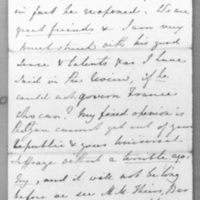 in fact be reopened. We are
great friends & I am very
much struck with his good
sense & talents & as I have
said in the Review, if he
could not govern France
who can? My fixed opinion is
that you cannot get out of your
Republic & your Universal
Suffrage without a terrible
and it will not be long
before we see M. M. Thiers,